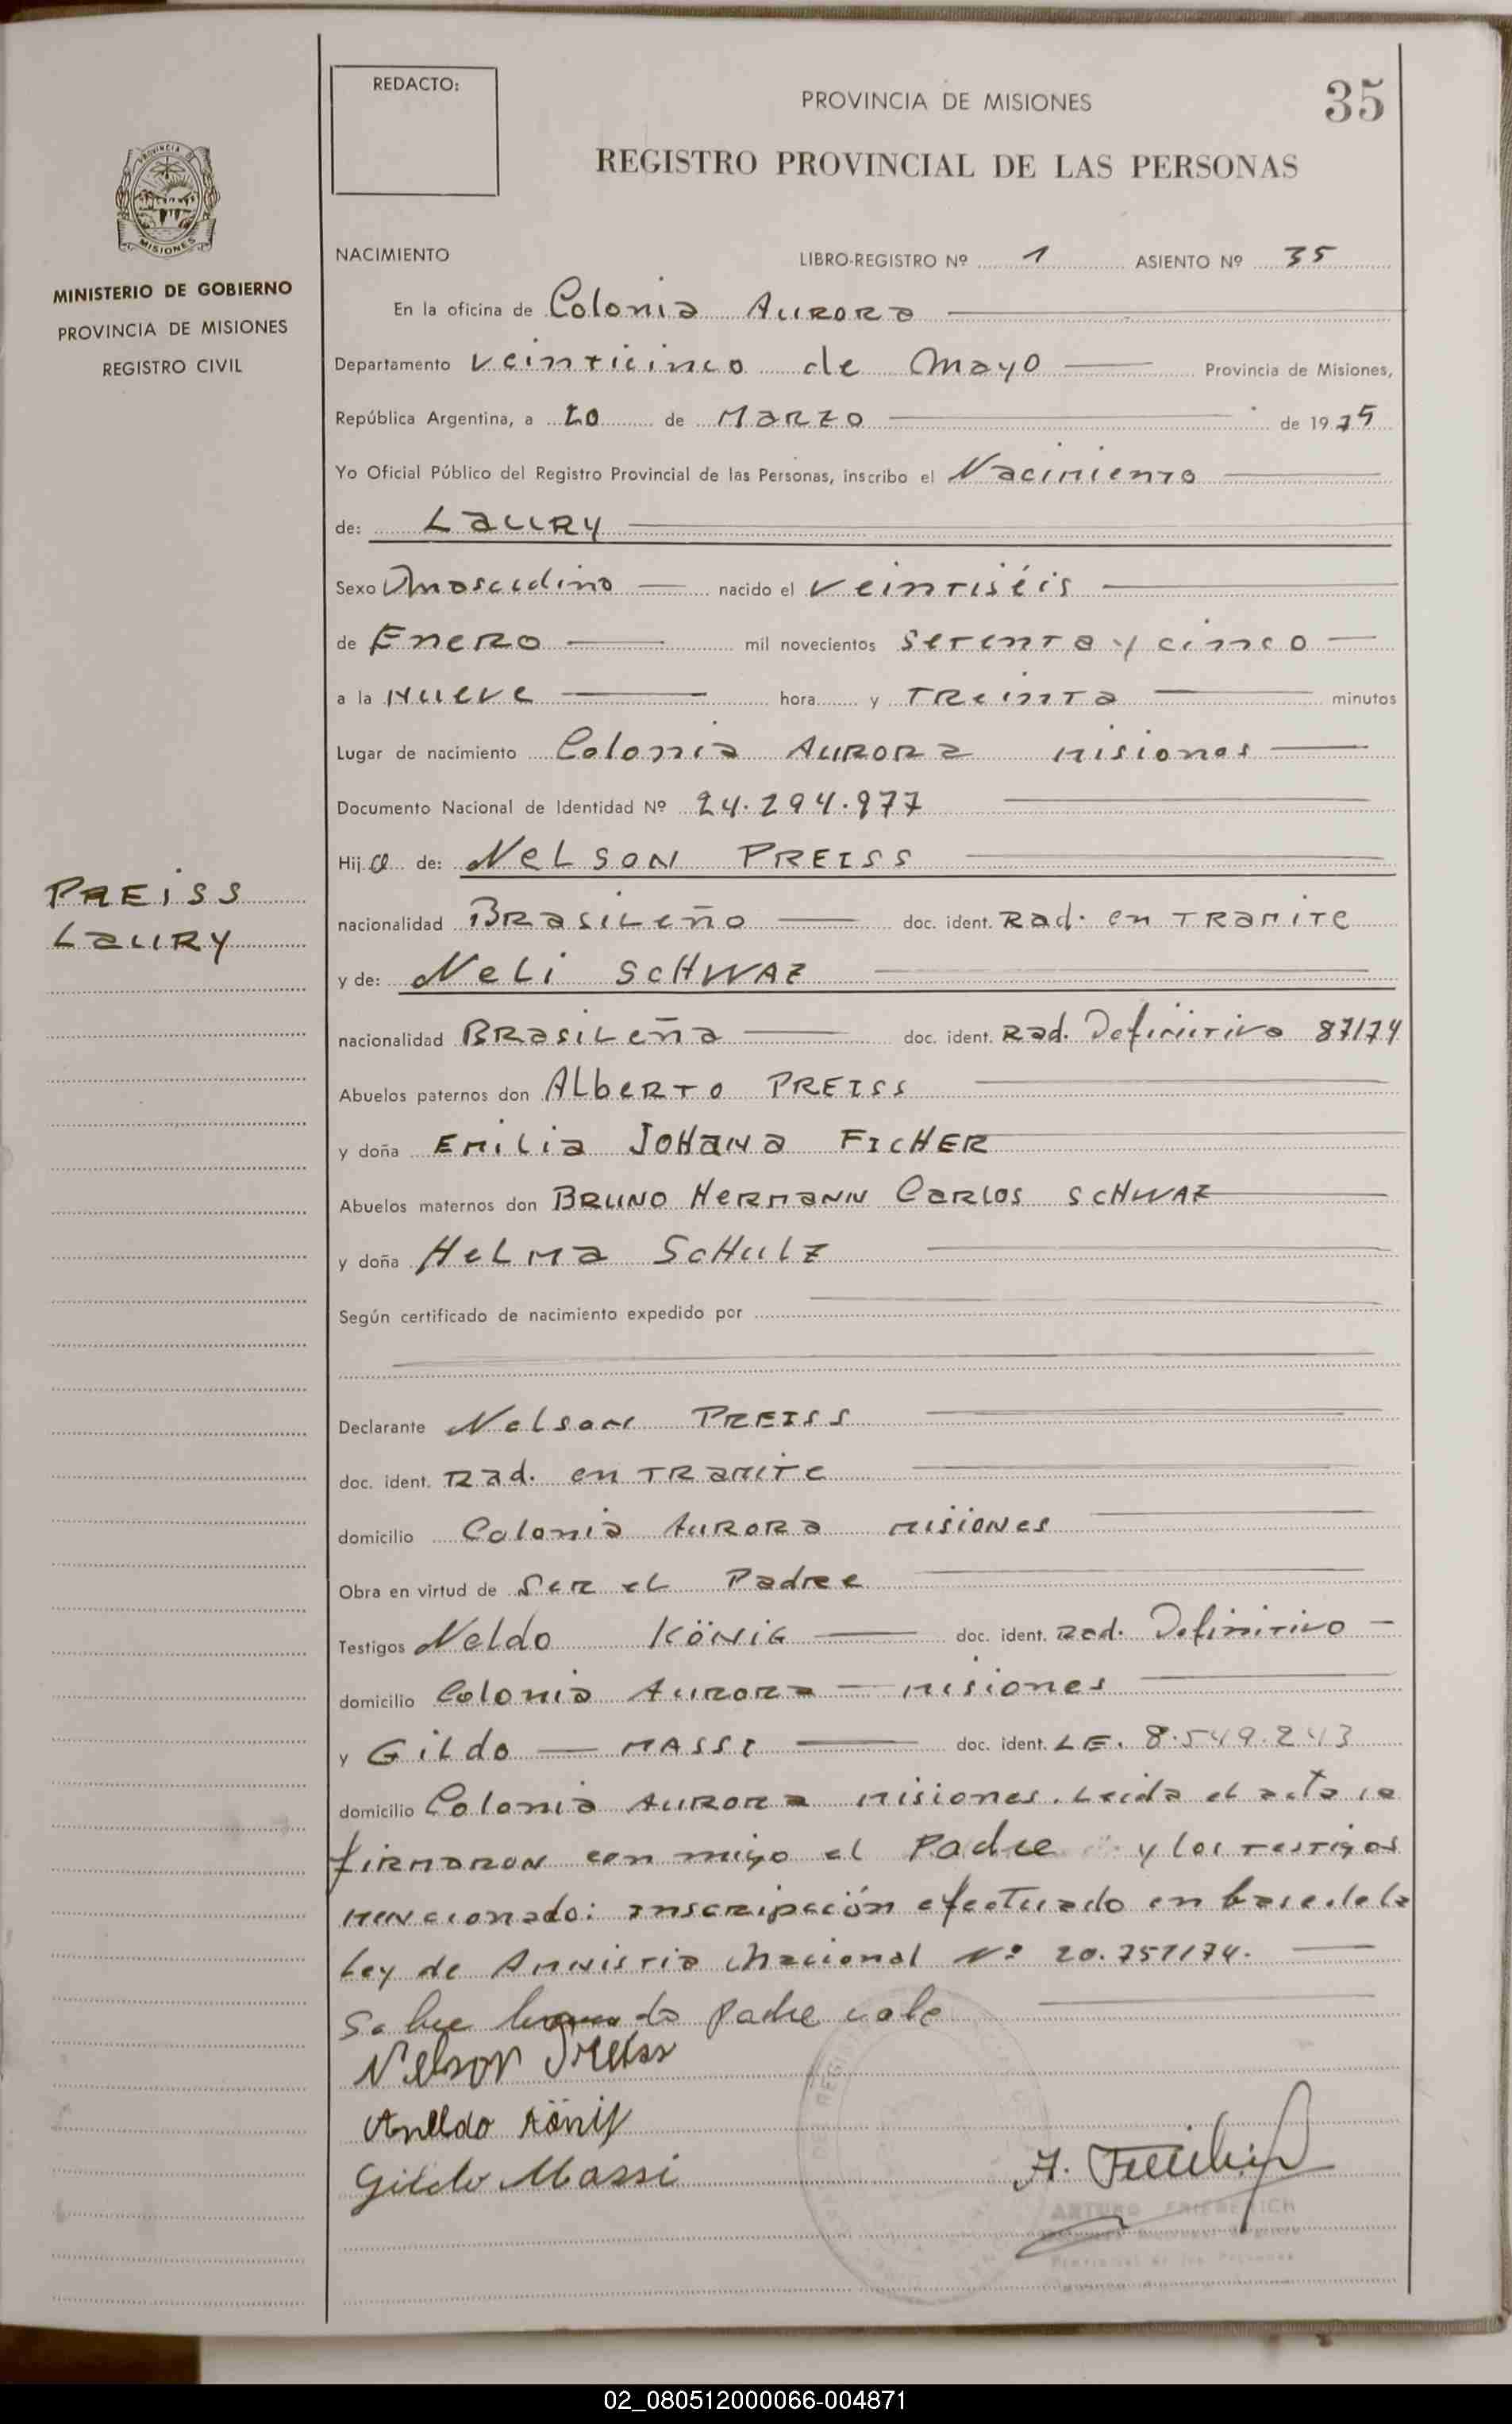 REDACTO:
PROVINCIA DE MISIONES
35
REGISTRO PROVINCIAL DE LAS PERSONAS
PROVINCIA DE
MISIONES
MINISTERIO DE GOBIERNO
PROVINCIA DE MISIONES
REGISTRO CIVIL
NACIMIENTO LIBRO-REGISTRO Nº 1 ASIENTO Nº 35
En la oficina de Colonia Aurora
Departamento veinticinco de Mayo Provincia de Misiones,
República Argentina, a 20 de Marzo de 1975
Yo Oficial Público del Registro Provincial de las Personas, inscribo el Nacimiento
de: Laury
Sexo Masculino nacido el veintiséis
de Enero mil novecientos setenta y cinco
a la Nueve hora y Treinta minutos
Lugar de nacimiento Colonia Aurora Misiones
Documento Nacional de Identidad Nº 24.294.977
Hijo de: Nelson PREISS
PREISS
Laury
nacionalidad Brasileño doc. ident. Rad. en Tramite
y de: Neli SCHWAZ
nacionalidad Brasileña doc. ident. Rad. Definitiva 87/74
Abuelos paternos don Alberto PREISS
y doña Emilia Johana FICHER
Abuelos maternos don Bruno Hermann Carlos SCHWAZ
y doña Helma Schulz
Según certificado de nacimiento expedido por
Declarante Nelson PREISS
doc. ident. Rad. en Tramite
domicilio Colonia Aurora Misiones
Obra en virtud de Ser el Padre
Testigos Neldo KÖNIG doc. ident. Rad. Definitivo
domicilio Colonia Aurora - Misiones
y Gildo - MASSI doc. ident. L.E. 8.549.243
domicilio Colonia Aurora Misiones. Leida el acta la
firmaron con migo el Padre y los testigos
mencionado: inscripción efectuado en base de la
Ley de Amnistia Nacional Nº 20.751/74.
Sobre do padre vale
Nelson Preiss
König
Gildo Massi
A. Friederich
ARTURO FRIEDERICH
02_080512000066-004871